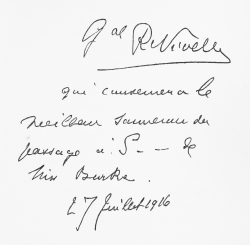 Gal R. Nivelle
qui conservera le
meilleur souvenir du
passage à S-- de
Miss Burke.
27 Juillet 1916